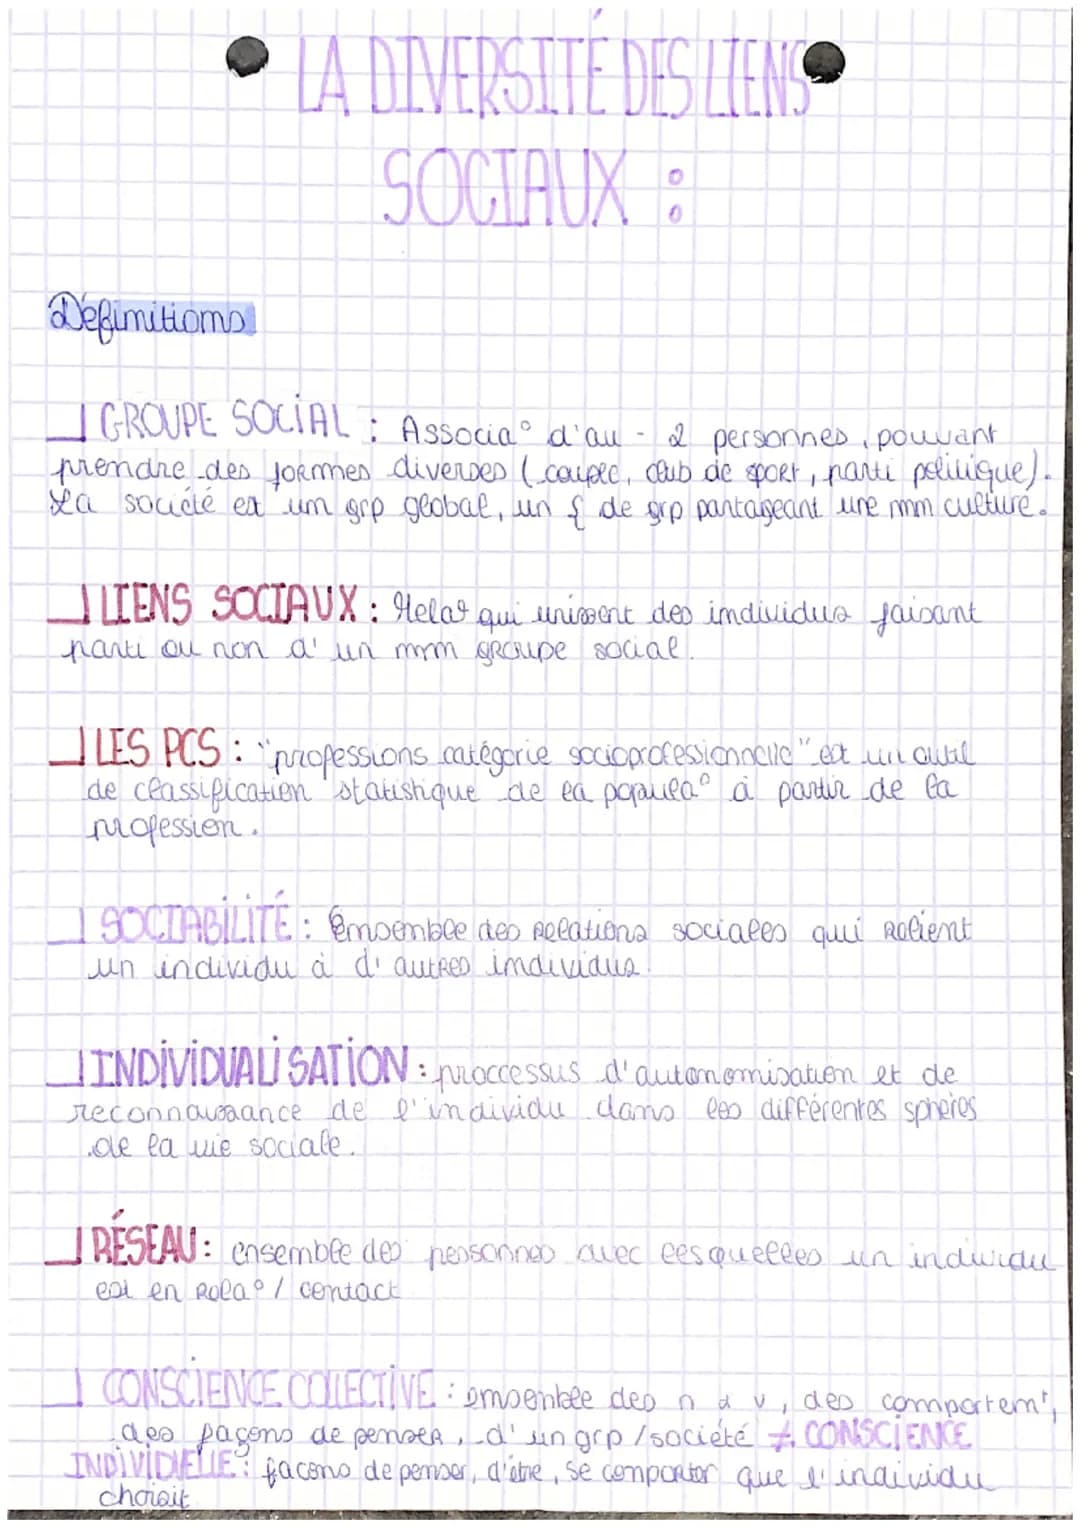 LA DIVERSITÉ DES LIENS
SOCIAUX :
Définitions
GROUPE SOCIAL : Associa° d'au - 2 personnes, pouvant
prendre des formes diverses (couple, club de sport, parti politique).
La société est un grp global, un { de grp partageant une mm culture.
LIENS SOCIAUX : Rela° qui unissent des individus faisant
parti ou non d'un mm groupe social.
LES PCS : "professions catégorie socioprofessionnelle" est un outil
de classification statistique de la popula° à partir de la
profession.
SOCIABILITÉ : Ensemble des relations sociales qui relient
un individu à d'autres individus.
INDIVIDUALISATION : proccessus d'autonomisation et de
reconnaissance de l'individu dans les différentes sphères
de la vie sociale.
RÉSEAU : ensemble des personnes avec lesquelles un individu
est en rela° / contact
CONSCIENCE COLLECTIVE : ensemble des n & v, des comportem't,
des façons de penser, d'un grp / société ≠ CONSCIENCE
INDIVIDUELLE : façons de penser, d'être, se comporter que l'individu
choisit